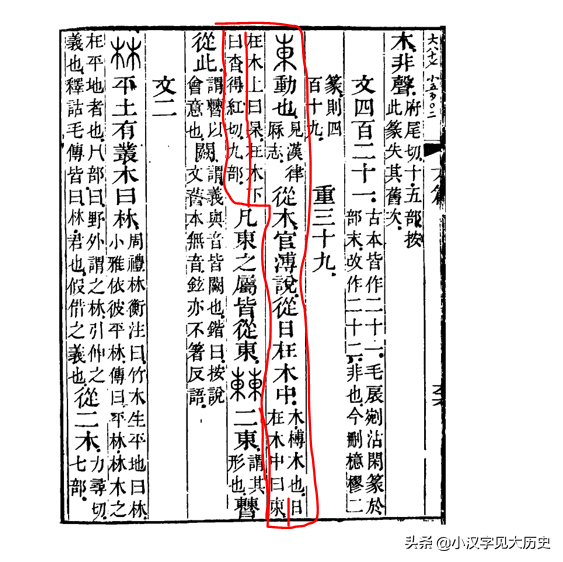 六篇
木非聲。府尾切。十五部。按此篆失其舊次。
文四百二十一。古本皆作二十一。毛扆剜沾閑篆於部末。改作二十二。非也。今刪檍樛二
篆。則四百十九。重三十九。
東動也。見漢律厤志。從木。官溥說。從日在木中。木榑木也。日在木中曰東。
在木上曰杲。在木下曰杳。得紅切。九部。凡東之屬皆從東。𣗏二東。謂其形也。㬱
從此。謂㬱以會意也。闕。謂義與音皆闕也。鍇曰。按說文舊本無音。鉉亦不箸反語。
文二
林平土有叢木曰林。周禮林衡注曰。竹木生平地曰林。小雅依彼平林。傳曰。平林。林木之
在平地者也。冂部曰。野外謂之林。引伸之義也。釋詁毛傳皆曰。林。君也。假借之義也。從二木。力尋切。七部。
头条 @小汉字见大历史